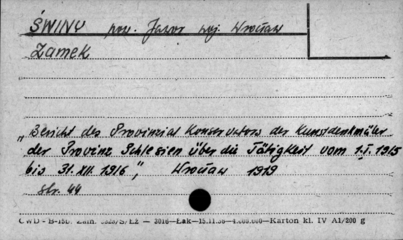 ŚWINY pow. Jawor woj. Wrocław
Zamek
„Bericht des Provinzial Konservators der Kunstdenkmäler
der Provinz Schlesien über die Tätigkeit vom 1.I.1915
bis 31.XII.1916", Wrocław 1919
str. 44
3016—Łąk—15.11.56—4.000.000—Karton kl. IV A1/200 g